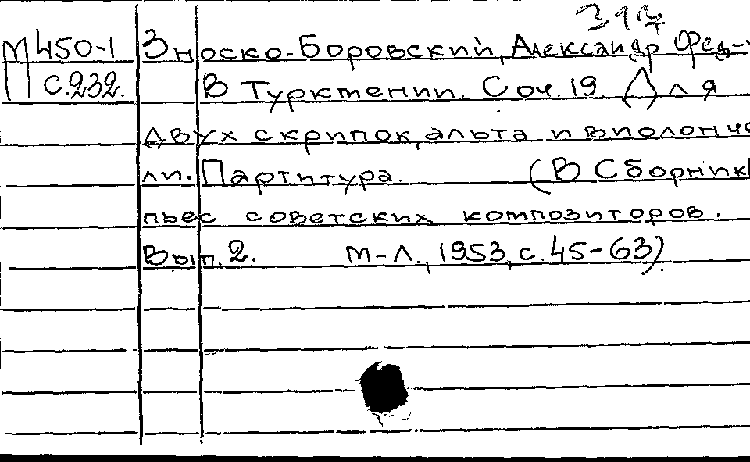 317
М450-1 Зноско-Боровский, Александр Фед-
П с.232. В Туркмении. Соч. 19. Для
двух скрипок, альта и виолонче
ли. Партитура. (В Сборник
пьес советских композиторов.
Вып. 2. М-Л., 1953, с. 45-63)